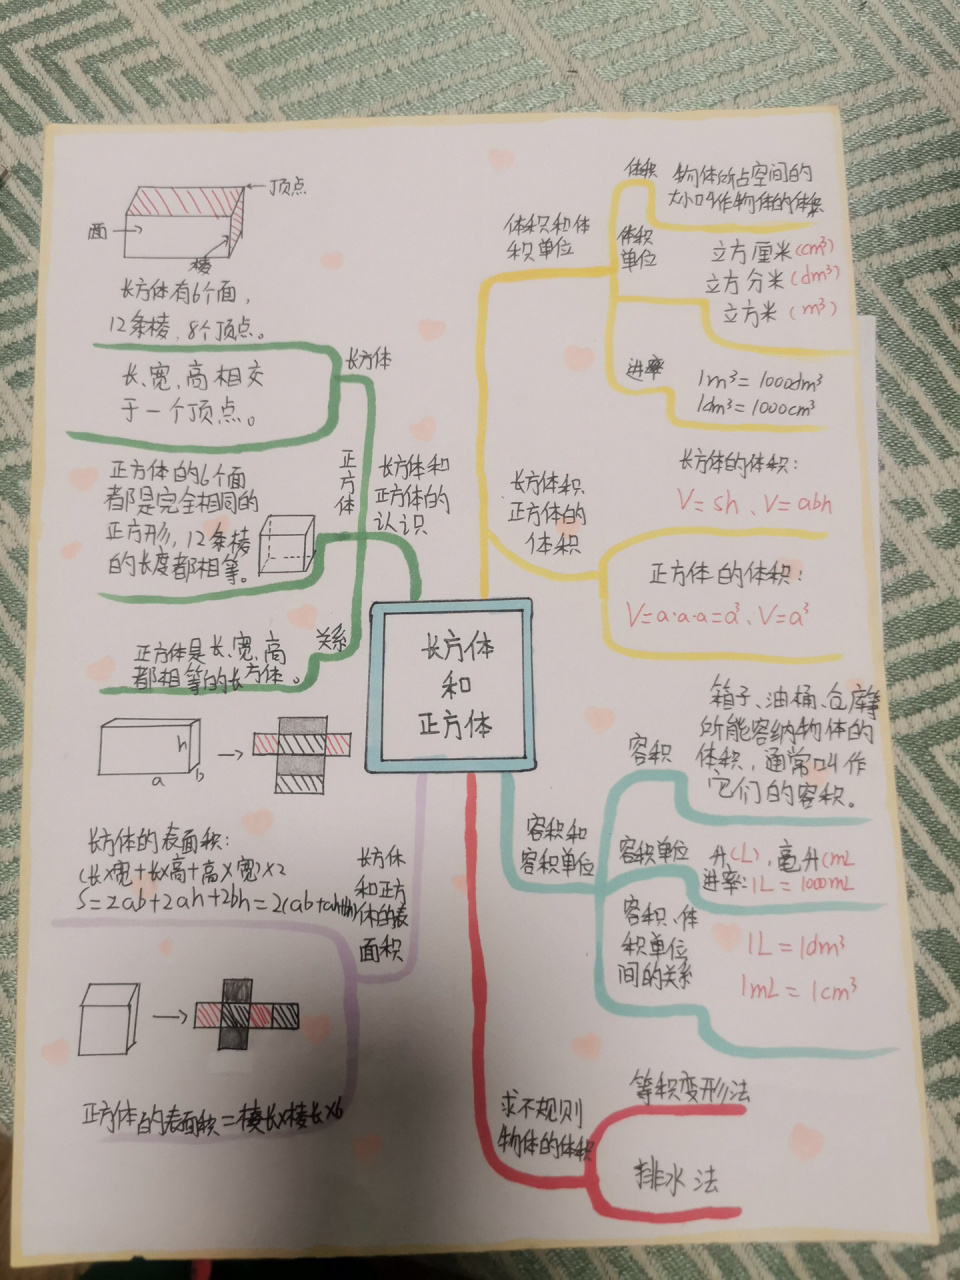 长方体
和
正方体
顶点
面
棱
长方体有6个面，
12条棱，8个顶点。
长方体
长、宽、高相交
于一个顶点。
正方体
正方体的6个面
都是完全相同的
正方形，12条棱
的长度都相等。
长方体和
正方体的
认识
关系
正方体是长、宽、高
都相等的长方体。
h
a
b
长方体的表面积：
(长×宽+长×高+高×宽)×2
S=2ab+2ah+2bh=2(ab+ah+bh)
长方体
和正方
体的表
面积
正方体的表面积=棱长×棱长×6
体积和体
积单位
体积
物体所占空间的
大小叫作物体的体积
体积
单位
立方厘米(cm³)
立方分米(dm³)
立方米(m³)
进率
1m³=1000dm³
1dm³=1000cm³
长方体积、
正方体的
体积
长方体的体积：
V=sh、V=abh
正方体的体积：
V=a·a·a=a³、V=a³
容积和
容积单位
容积
箱子、油桶、仓库等
所能容纳物体的
体积，通常叫作
它们的容积。
容积单位
升(L)，毫升(mL
进率：1L=1000mL
容积、体
积单位
间的关系
1L=1dm³
1mL=1cm³
求不规则
物体的体积
等积变形法
排水法